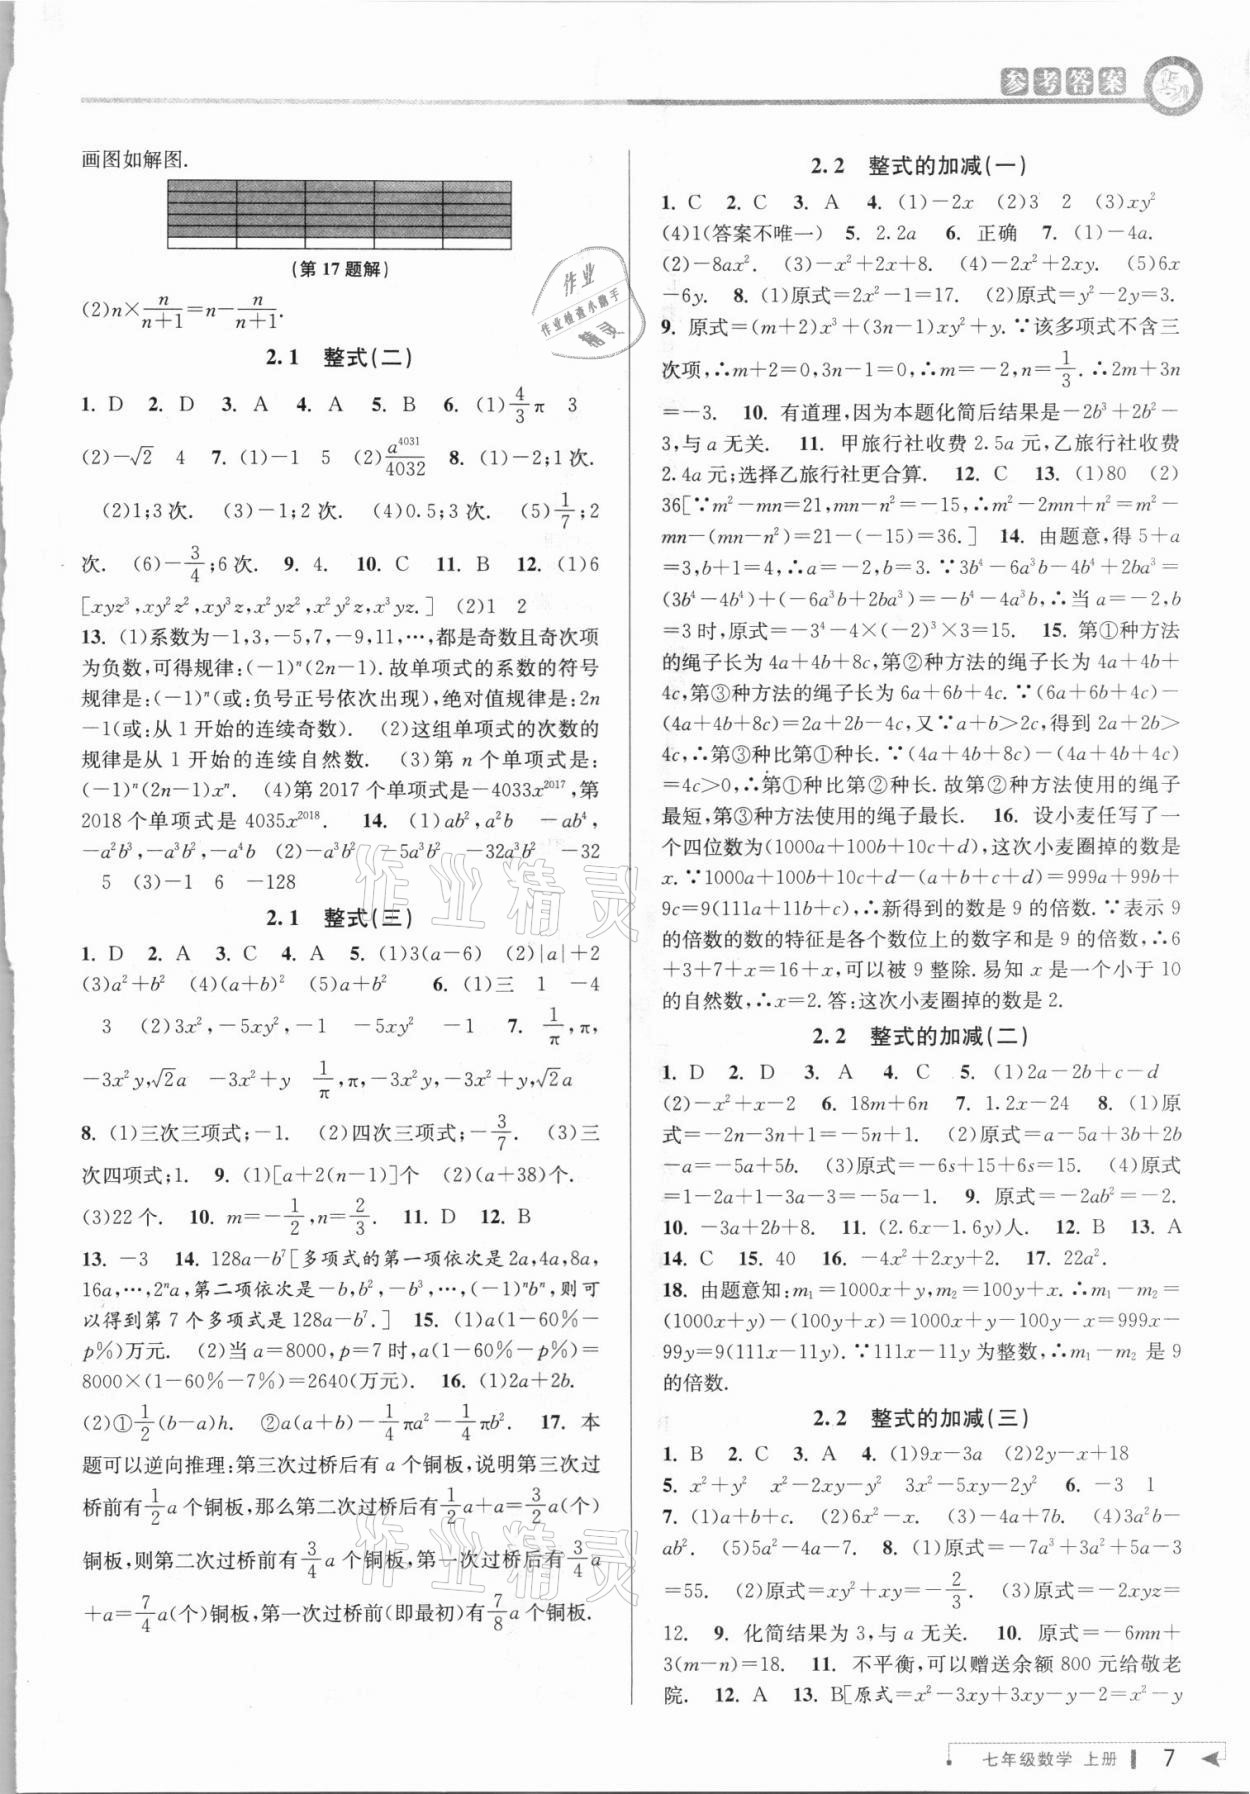 参考答案
画图如解图.
(第 17 题解)
(2)n×n/(n+1)=n-n/(n+1).
2.1 整式(二)
1. D 2. D 3. A 4. A 5. B 6. (1)4/3π 3
(2)-√2 4 7. (1)-1 5 (2)a^4031/4032 8. (1)-2;1次.
(2)1;3次. (3)-1;2次. (4)0.5;3次. (5)1/7;2
次. (6)-3/4;6次. 9. 4. 10. C 11. B 12. (1)6
[xyz³,xy²z²,xy³z,x²yz²,x²y²z,x³yz.] (2)1 2
13. (1)系数为-1,3,-5,7,-9,11,…,都是奇数且奇次项
为负数,可得规律:(-1)ⁿ(2n-1).故单项式的系数的符号
规律是:(-1)ⁿ(或:负号正号依次出现),绝对值规律是:2n
-1(或:从 1 开始的连续奇数). (2)这组单项式的次数的
规律是从 1 开始的连续自然数. (3)第 n 个单项式是:
(-1)ⁿ(2n-1)xⁿ. (4)第 2017 个单项式是-4033x²⁰¹⁷,第
2018 个单项式是 4035x²⁰¹⁸. 14. (1)ab²,a²b -ab⁴,
-a²b³,-a³b²,-a⁴b (2)-a³b² -5a³b² -32a³b² -32
5 (3)-1 6 -128
2.1 整式(三)
1. D 2. A 3. C 4. A 5. (1)3(a-6) (2)|a|+2
(3)a²+b² (4)(a+b)² (5)a+b² 6. (1)三 1 -4
3 (2)3x²,-5xy²,-1 -5xy² -1 7. 1/π,π,
-3x²y,√2a -3x²+y 1/π,π,-3x²y,-3x²+y,√2a
8. (1)三次三项式;-1. (2)四次三项式;-3/7. (3)三
次四项式;1. 9. (1)[a+2(n-1)]个 (2)(a+38)个.
(3)22个. 10. m=-1/2,n=2/3. 11. D 12. B
13. -3 14. 128a-b⁷[多项式的第一项依次是2a,4a,8a,
16a,…,2ⁿa,第二项依次是-b,b²,-b³,…,(-1)ⁿbⁿ,则可
以得到第 7 个多项式是128a-b⁷.] 15. (1)a(1-60%-
p%)万元. (2)当a=8000,p=7时,a(1-60%-p%)=
8000×(1-60%-7%)=2640(万元). 16. (1)2a+2b.
(2)①1/2(b-a)h. ②a(a+b)-1/4πa²-1/4πb². 17. 本
题可以逆向推理:第三次过桥后有 a 个铜板,说明第三次过
桥前有1/2a 个铜板,那么第二次过桥后有1/2a+a=3/2a(个)
铜板,则第二次过桥前有3/4a 个铜板,第一次过桥后有3/4a
+a=7/4a(个)铜板,第一次过桥前(即最初)有7/8a 个铜板.
2.2 整式的加减(一)
1. C 2. C 3. A 4. (1)-2x (2)3 2 (3)xy²
(4)1(答案不唯一) 5. 2.2a 6. 正确 7. (1)-4a.
(2)-8ax². (3)-x²+2x+8. (4)-2x²+2xy. (5)6x
-6y. 8. (1)原式=2x²-1=17. (2)原式=y²-2y=3.
9. 原式=(m+2)x³+(3n-1)xy²+y.∵该多项式不含三
次项,∴m+2=0,3n-1=0,∴m=-2,n=1/3.∴2m+3n
=-3. 10. 有道理,因为本题化简后结果是-2b³+2b²-
3,与 a 无关. 11. 甲旅行社收费 2.5a 元,乙旅行社收费
2.4a 元;选择乙旅行社更合算. 12. C 13. (1)80 (2)
36[∵m²-mn=21,mn-n²=-15,∴m²-2mn+n²=m²-
mn-(mn-n²)=21-(-15)=36.] 14. 由题意,得 5+a
=3,b+1=4,∴a=-2,b=3.∵3b⁴-6a³b-4b⁴+2ba³=
(3b⁴-4b⁴)+(-6a³b+2ba³)=-b⁴-4a³b,∴当a=-2,b
=3时,原式=-3⁴-4×(-2)³×3=15. 15. 第①种方法
的绳子长为 4a+4b+8c,第②种方法的绳子长为 4a+4b+
4c,第③种方法的绳子长为6a+6b+4c.∵(6a+6b+4c)-
(4a+4b+8c)=2a+2b-4c,又∵a+b>2c,得到 2a+2b>
4c,∴第③种比第①种长.∵(4a+4b+8c)-(4a+4b+4c)=
4c>0,∴第①种比第②种长.故第②种方法使用的绳子
最短,第③种方法使用的绳子最长. 16. 设小麦任写了一
个四位数为(1000a+100b+10c+d),这次小麦圈掉的数是
x.∵1000a+100b+10c+d-(a+b+c+d)=999a+99b+
9c=9(111a+11b+c),∴新得到的数是 9 的倍数.∵表示 9
的倍数的数的特征是各个数位上的数字和是 9 的倍数,∴6
+3+7+x=16+x,可以被 9 整除.易知 x 是一个小于 10
的自然数,∴x=2.答:这次小麦圈掉的数是2.
2.2 整式的加减(二)
1. D 2. D 3. A 4. C 5. (1)2a-2b+c-d
(2)-x²+x-2 6. 18m+6n 7. 1.2x-24 8. (1)原
式=-2n-3n+1=-5n+1. (2)原式=a-5a+3b+2b
-a=-5a+5b. (3)原式=-6s+15+6s=15. (4)原式
=1-2a+1-3a-3=-5a-1. 9. 原式=-2ab²=-2.
10. -3a+2b+8. 11. (2.6x-1.6y)人. 12. B 13. A
14. C 15. 40 16. -4x²+2xy+2. 17. 22a².
18. 由题意知:m₁=1000x+y,m₂=100y+x.∴m₁-m₂=
(1000x+y)-(100y+x)=1000x+y-100y-x=999x-
99y=9(111x-11y).∵111x-11y为整数,∴m₁-m₂ 是 9
的倍数.
2.2 整式的加减(三)
1. B 2. C 3. A 4. (1)9x-3a (2)2y-x+18
5. x²+y² x²-2xy-y² 3x²-5xy-2y² 6. -3 1
7. (1)a+b+c. (2)6x²-x. (3)-4a+7b. (4)3a²b-
ab². (5)5a²-4a-7. 8. (1)原式=-7a³+3a²+5a-3
=55. (2)原式=xy²+xy=-2/3. (3)原式=-2xyz=
12. 9. 化简结果为 3,与 a 无关. 10. 原式=-6mn+
3(m-n)=18. 11. 不平衡,可以赠送余额 800 元给敬老
院. 12. A 13. B[原式=x²-3xy+3xy-y-2=x²-y
七年级数学 上册 7
作业
作业检查小助手
精灵
作业精灵
作业精灵